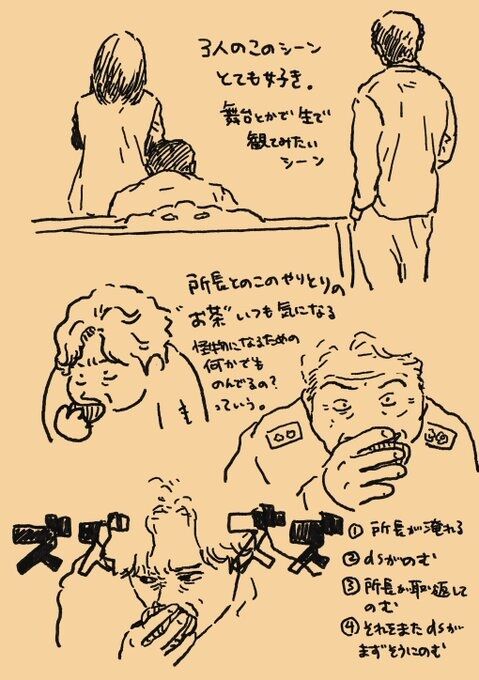 3人のこのシーン
とても好き。
舞台とかで生で
観てみたい
シーン
所長とのこのやりとりの
"お茶"いつも気になる
怪物になるための
何かでも
のんでるの?
っていう。
ズズズズ
① 所長が淹れる
② dsがのむ
③ 所長が取り返して
のむ
④ それをまたdsが
まずそうにのむ